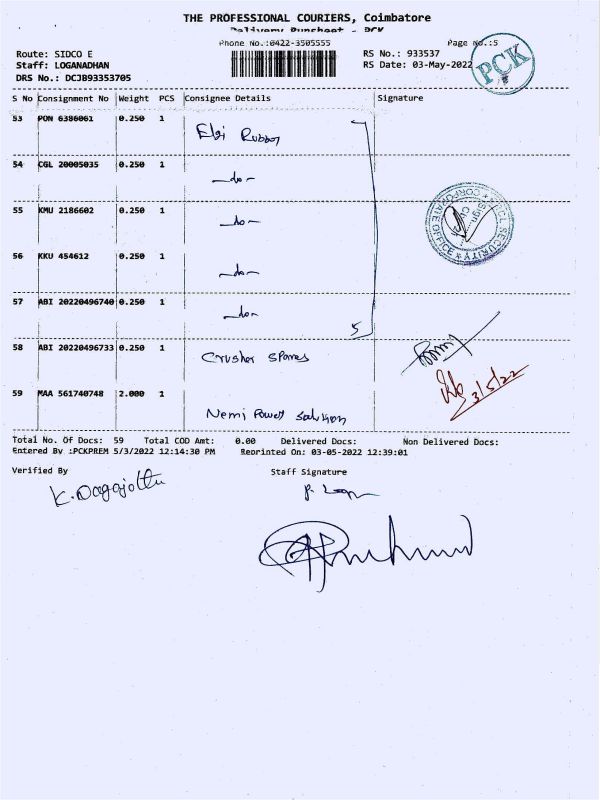 THE PROFESSIONAL COURIERS, Coimbatore
Delivery Runsheet - PCK
Phone No.:0422-3505555 Page No.:5
Route: SIDCO E RS No.: 933537
Staff: LOGANADHAN RS Date: 03-May-2022
DRS No.: DCJB93353705
PCK
S No Consignment No Weight PCS Consignee Details Signature
53 PON 6386061 0.250 1 Elgi Rubber
54 CGL 20005035 0.250 1 -do-
55 KMU 2186602 0.250 1 -do-
56 KKU 454612 0.250 1 -do-
57 ABI 20220496740 0.250 1 -do-
5
CORPORATE OFFICE SECURITY
58 ABI 20220496733 0.250 1 Crusher Spares
3/5/22
59 MAA 561740748 2.000 1 Nemi Power Solution
Total No. Of Docs: 59 Total COD Amt: 0.00 Delivered Docs: Non Delivered Docs:
Entered By :PCKPREM 5/3/2022 12:14:30 PM Reprinted On: 03-05-2022 12:39:01
Verified By Staff Signature